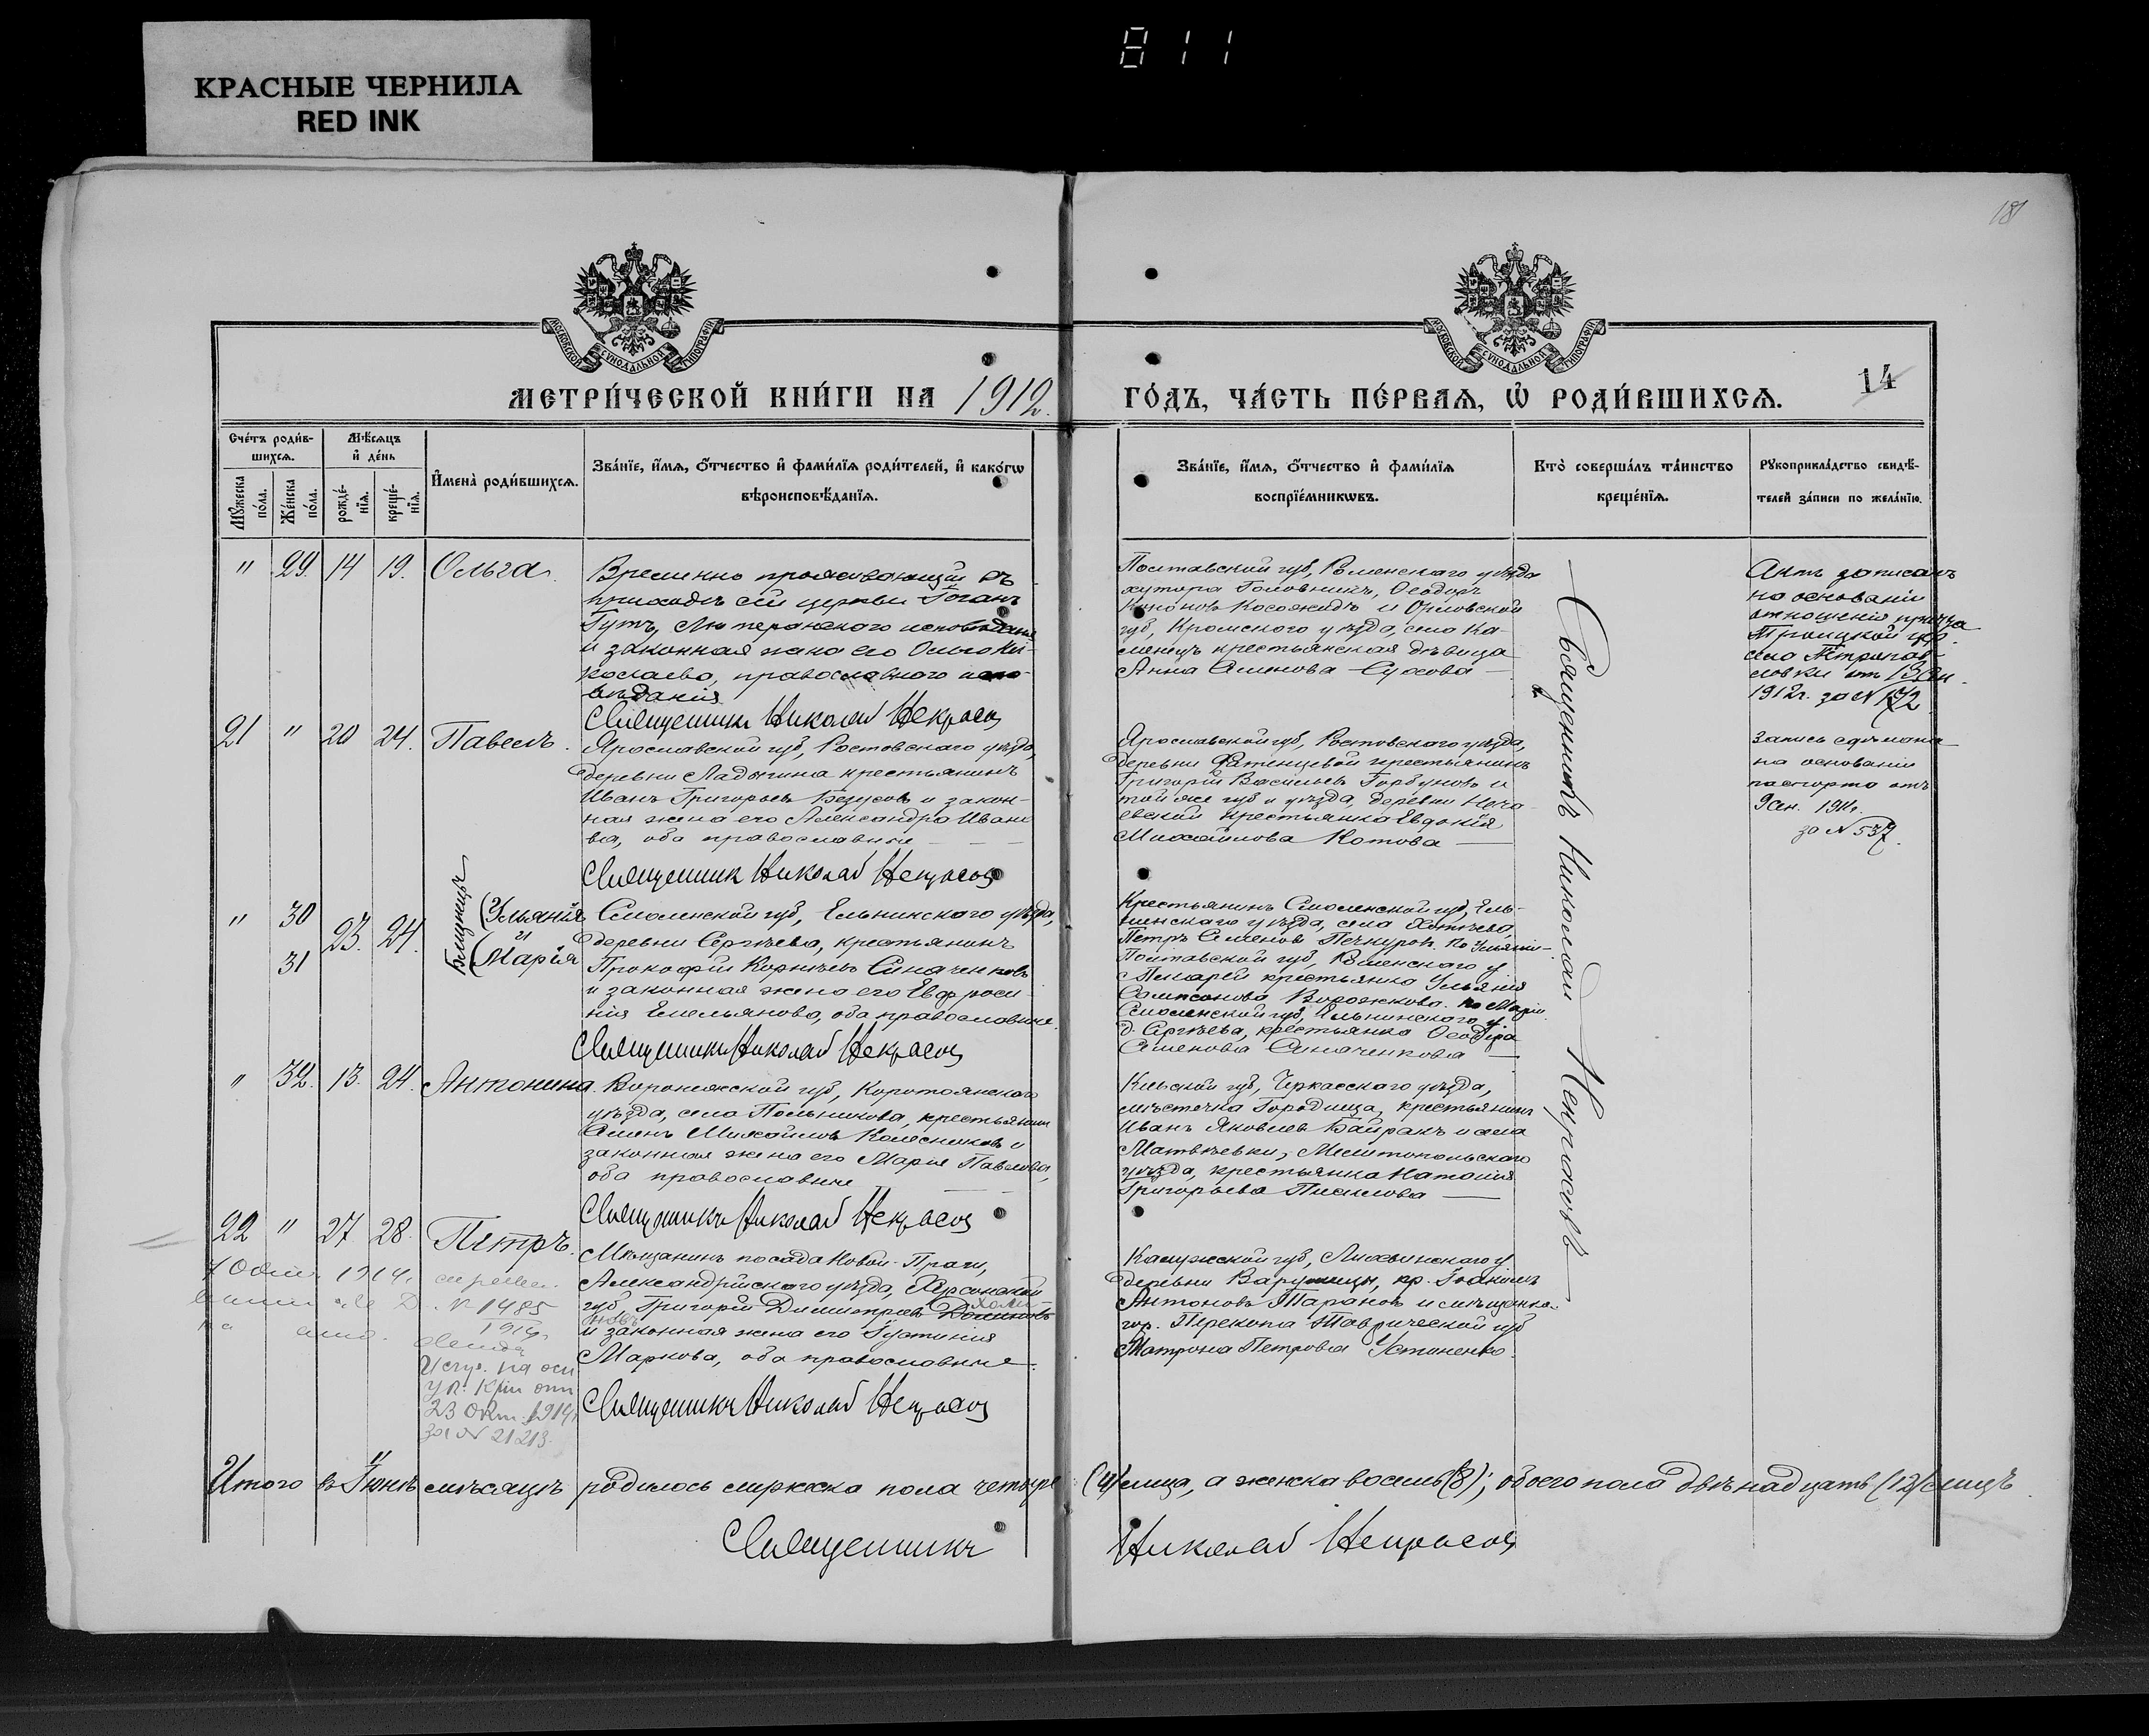 811
КРАСНЫЕ ЧЕРНИЛА
RED INK
181
МОСКОВСКОЙ СѴНОДАЛЬНОЙ ТИПОГРАФІИ
МОСКОВСКОЙ СѴНОДАЛЬНОЙ ТИПОГРАФІИ
МЕТРИ́ЧЕСКОЙ КНИ́ГИ НА 1912.
ГО́ДЪ, ЧА́СТЬ ПЕ́РВАѦ, Ѿ РОДИ́ВШИХСѦ.
14
Сче́тъ роди́в-
шихсѧ.
Мѣ́сѧцъ
и҆ де́нь
Мꙋ́жеска
по́ла.
Же́нска
по́ла.
рожде́-
нїѧ.
креще́-
нїѧ.
И҆мена̀ роди́вшихсѧ.
Зва́нїе, и҆́мѧ, ѻ҆́тчество и҆ фамилїѧ роди́телей, и҆ како́гѡ
вѣроисповѣ́данїѧ.
Зва́нїе, и҆́мѧ, ѻ҆́тчество и҆ фами́лїѧ
воспрїе́мникѡвъ.
Кто̀ соверша́лъ та́инство
креще́нїѧ.
Рꙋкоприкла́дство свидѣ́-
телей за́писи по жела́нїю.
" 29. 14 19. Ольга.
Временно проживающій въ
приходѣ сей церкви Іоганъ
Гутъ, Лютеранскаго исповѣданія
и законная жена его Ольга Ни-
колаева, православнаго испо-
вѣданія
Священникъ Николай Некрасовъ
Полтавской губ, Роменскаго уѣзда
хутора Головникъ, Ѳеодоръ
Кононовъ Косоножидъ и Орловской
губ, Кромскаго уѣзда, села Ка-
менецъ крестьянская дѣвица
Анна Семенова Сухова
Священникъ Николай Некрасовъ
Актъ записанъ
на основаніи
отношенія причта
Троицкой цер.
села Петропав-
ловки отъ
1912 г. за № 172
21 " 20 24. Павелъ.
Ярославской губ, Ростовскаго уѣзда,
деревни Ладонина крестьянинъ
Иванъ Григорьевъ Безусовъ и закон-
ная жена его Александра Ивано-
ва, оба православные
Священникъ Николай Некрасовъ
Ярославской губ, Ростовскаго уѣзда,
деревни крестьянинъ
Григорій Васильевъ Горбуновъ и
той же губ и уѣзда, деревни
крестьянка Евдокія
Михайлова Котова
Запись сдѣлана
на основаніи
паспорта отъ
9 Сен. 1911 г.
за № 537
" 30 31 23. 24.
Близнецы
Ульянія
и
Марія
Смоленской губ, Ельнинскаго уѣзда,
деревни Сергѣева, крестьянинъ
Прокофій Корнѣевъ Синаченковъ
и законная жена его Евфроси-
нія Емельянова, оба православные.
Священникъ Николай Некрасовъ
Крестьянинъ Смоленской губ, Ель-
нинскаго уѣзда, села Хотѣева,
Петръ Семеновъ Печкуровъ. по Ульяніи-
Полтавской губ, Роменскаго у
крестьянка Ульянія
Сампсонова Ворожкова. по Маріи
Смоленской губ, Ельнинскаго у
д. Сергѣева, крестьянка Ѳеодора
Семенова Синаченкова
" 32. 13. 24. Антонина.
Воронежской губ, Коротоякскаго
уѣзда, села Польникова, крестьянинъ
Семенъ Михайловъ Колесниковъ и
законная жена его Марія Павлова,
оба православные
Священникъ Николай Некрасовъ
Кіевской губ, Черкасскаго уѣзда,
мѣстечка Городища, крестьянинъ
Иванъ Яковлевъ Байракъ и села
Матвѣевки, Мелитопольскаго
уѣзда, крестьянка Наталія
Григорьева
22 " 27. 28. Петръ.
Мѣщанинъ посада Новой-Праги,
Александрійскаго уѣзда, Херсонской
губ, Григорій Димитріевъ
и законная жена его Іустинія
Маркова, оба православные.
Священникъ Николай Некрасовъ
Калужской губ, Лихвинскаго у
деревни Варушицы, кр. Іоакимъ
Антоновъ Тарановъ и мѣщанка
гор. Перекопа Таврической губ
Матрона Петрова Устименко.
1914 г.
№ 1485
1914
23 Окт. 1914
за № 21213.
Итого въ Іюнѣ мѣсяцѣ родилось мужеска пола четыре (4) лица, а женска восемь (8); обоего пола двѣнадцать (12) лицъ
Священникъ Николай Некрасовъ